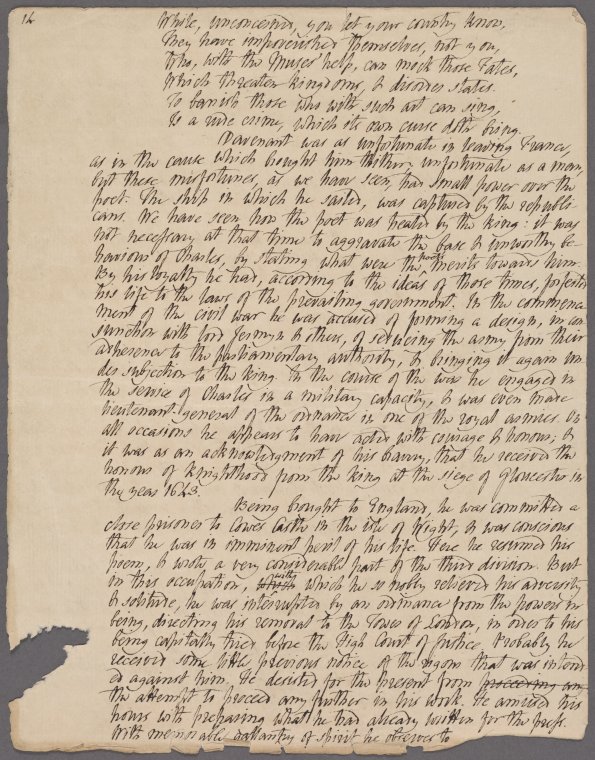 14
While, unconcerned, you let your country know,
They have impoverished themselves, not you,
Who, with the Muses' help, can mock those Fates,
Which threaten kingdoms, & disorder states.
To banish those who with such art can sing,
Is a rude crime, which its own curse doth bring.
Davenant was as unfortunate in leaving France,
as in the cause which brought him thither: unfortunate as a man,
but these misfortunes, as we have seen, had small power over the
poet. The ship in which he sailed, was captured by the republi-
cans. We have seen how the poet was treated by the king: it was
not necessary at that time to aggravate the base & unworthy be-
haviour of Charles, by stating what were the poet's merits towards him.
By his loyalty he had, according to the ideas of those times, forfeited
his life to the laws of the prevailing government. In the commence
ment of the civil war he was accused of forming a design, in con
junction with lord Jermyn & others, of seducing the army from their
adherence to the parliamentary authority, & bringing it again un-
der subjection to the king. In the course of the war he engaged in
the service of Charles in a military capacity, & was even made
lieutenant-general of the ordnance in one of the royal armies. On
all occasions he appears to have acted with courage & honour; &
it was as an acknowledgment of his bravery, that he received the
honour of knighthood from the king at the siege of Gloucester in
the year 1643.
Being brought to England, he was committed a
close prisoner to Cowes Castle in the isle of Wight, & was conscious
that he was in imminent peril of his life. Here he resumed his
poem, & wrote a very considerable part of the third division. But
in this occupation, with which he so nobly relieved his adversity
& solitude, he was interrupted by an ordinance from the powers in
being, directing his removal to the Tower of London, in order to his
being capitally tried before the High Court of Justice. Probably he
received some little previous notice of the rigour that was intend
ed against him. He desisted for the present from proceeding any
the attempt to proceed any further in his work. He amused his
hours with preparing what he had already written for the press.
With memorable gallantry of spirit he observes to